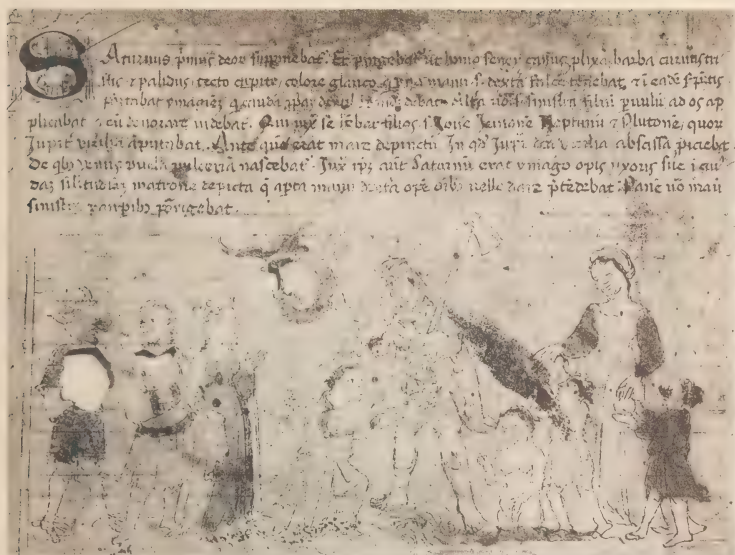 Saturnus p̄mus deor̄ supponebat᷑. Et pingebat᷑ ut homo senex canus, plixa barba curuus tri
stis ⁊ palidus, tecto capite, colore glauco, q̄ una manu s. dextra falcē tenebat, ⁊ i eadē s.
portabat ymaginē q̄ caudā
plicabat ⁊ eū deuorare uidebat᷑. Qui iux̄ se hēbat filios s. Iouē Iunonē Neptunū ⁊ Plutonē, quor̄
Iupit᷑ uirilia amputabat. Ante quē erat mare depictū in qd̄ Iupit᷑ uirilia abscissa piciebat.
De qb; Uenus puella pulcerīa nascebat᷑. Iux̄ ipm̄ aūt Saturnū erat ymago opis uxoris sue i cui᷒
daȝ silitudinē matrone depicta q̄ apta manu dextra opē oīb; uelle dare p̄tēdebat. Panē uō manu
sinistra paupib; porrigebat.